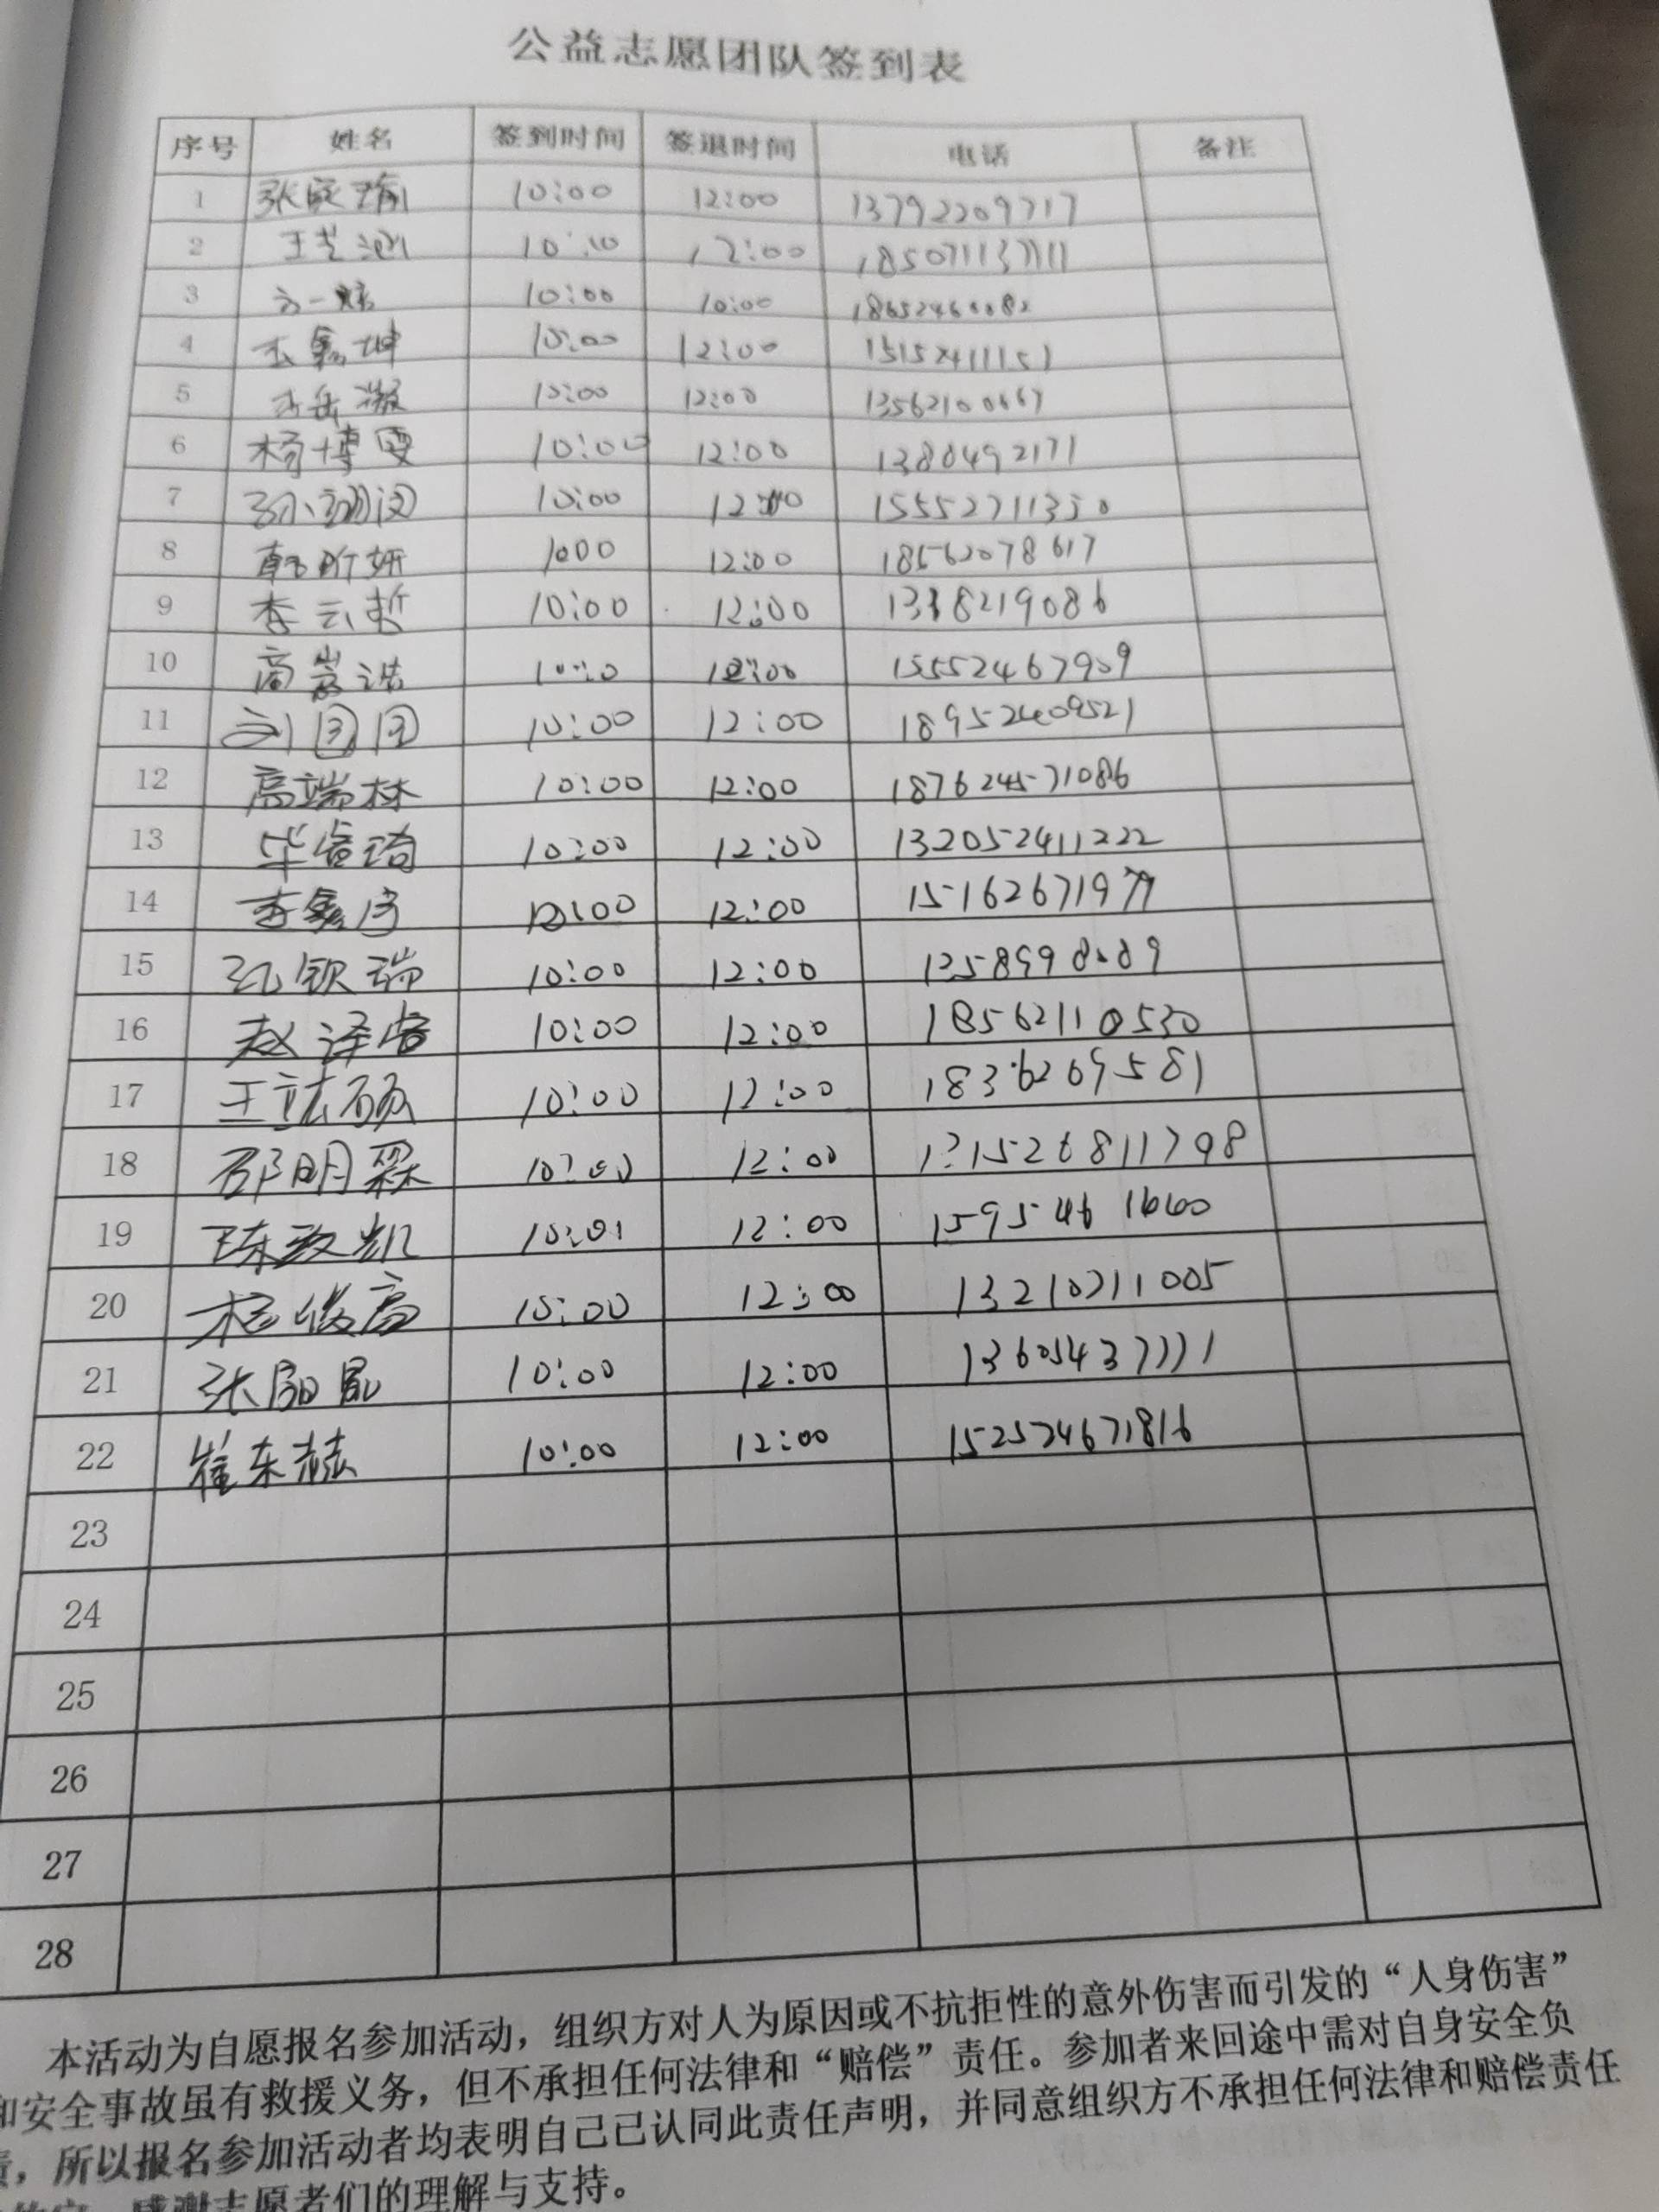 公益志愿团队签到表
序号 姓名 签到时间 签退时间 电话 备注
1 10:00 12:00 13792209717
2 12:00
3 10:00 10:00
4 10:00 12:00 15152411151
5 10:00 12:00
6 杨博雯 10:00 12:00 1380492171
7 10:00 15552711330
8 韩昕妍 1000 12:00 18562078617
9 李云哲 10:00 12:00
10 高嵩浩 15552467909
11 刘国国 10:00 12:00 18952409521
12 高端林 10:00 12:00
13 毕睿琦 10:00 12:00 132052411222
14 12:00
15 孔钦瑞 10:00 12:00
16 赵泽睿 10:00 12:00 18562110530
17 10:00 12:00 1836269581
18 邵明霖 12:00
19 陈致凯 10:01 12:00
20 10:00 12:00 13210711005
21 10:00 12:00
22 崔东赫 10:00 12:00 152524671816
23
24
25
26
27
28
本活动为自愿报名参加活动，组织方对人为原因或不抗拒性的意外伤害而引发的“人身伤害”
和安全事故虽有救援义务，但不承担任何法律和“赔偿”责任。参加者来回途中需对自身安全负
责，所以报名参加活动者均表明自己已认同此责任声明，并同意组织方不承担任何法律和赔偿责任
感谢志愿者们的理解与支持。